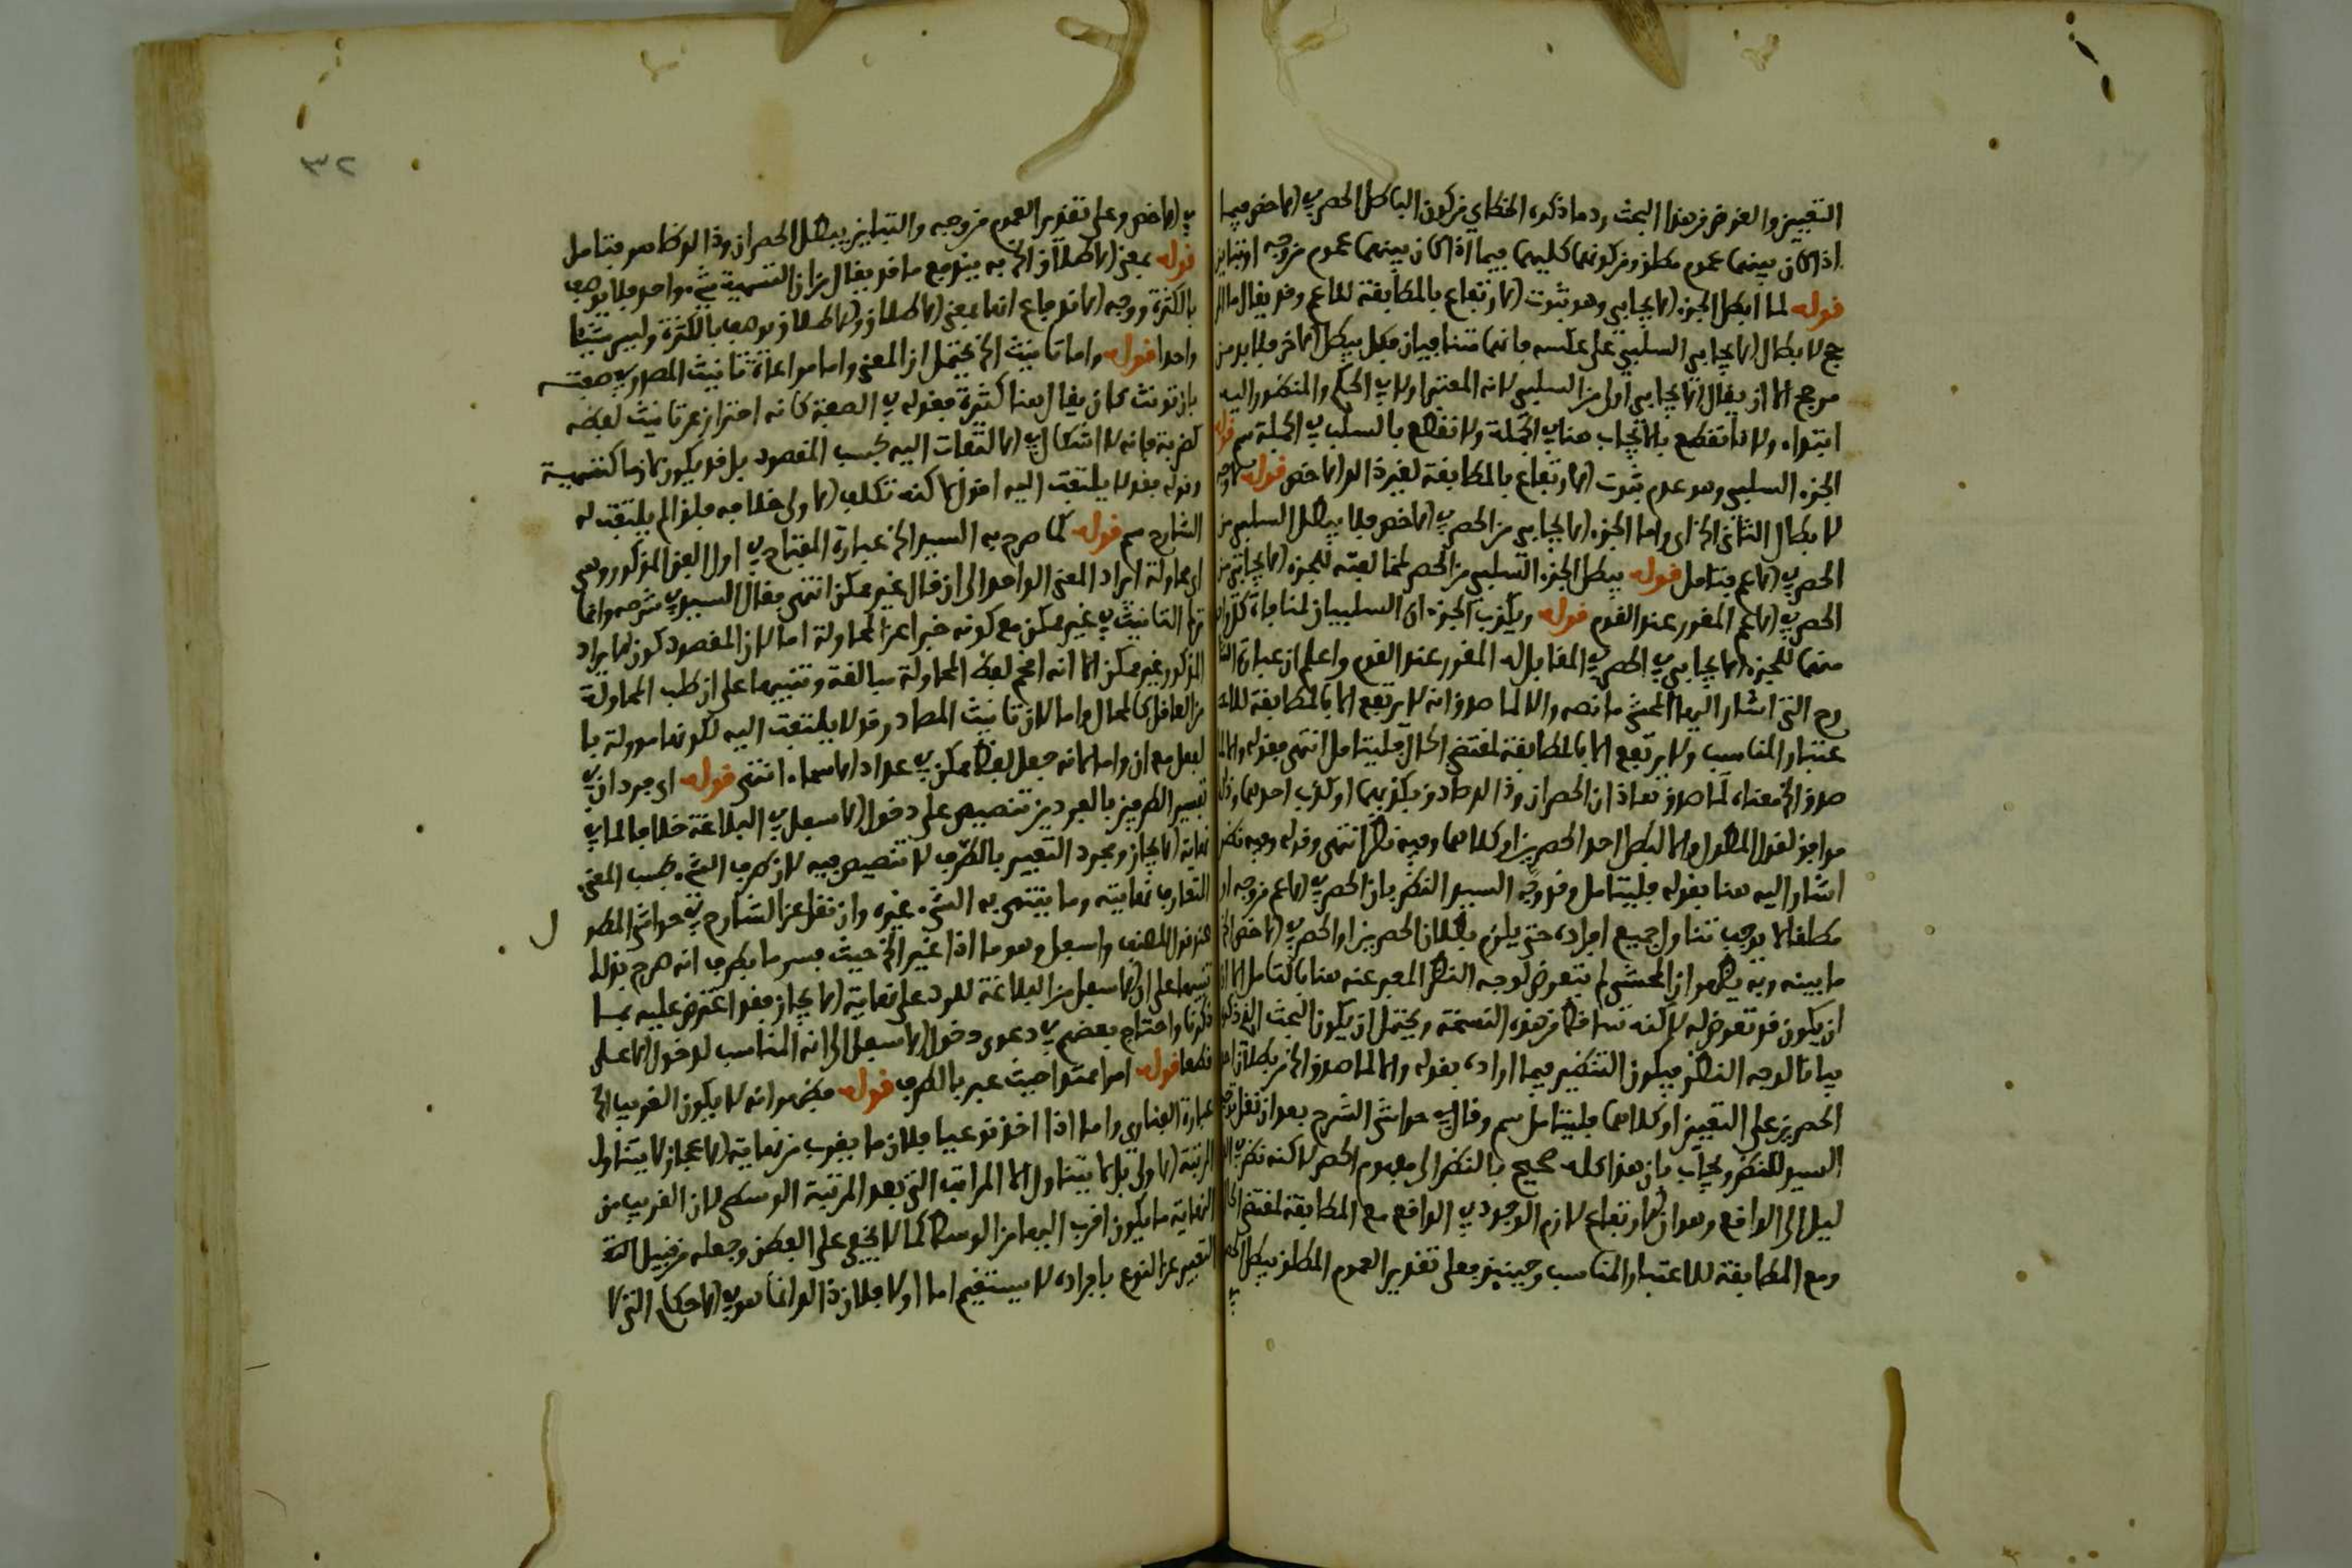 التعيين والغرض من هذا البحث رد ما ذكره الخطاي من كون الباطل الحصر في الاخص فيما
اذا كان بينهما عموم مطلق ومن كونهما كليهما فيما اذا كان بينهما عموم من وجه او تباين
قوله لما ابطل الجزء الايجابي وهو ثبوت الارتفاع بالمطابقة للاعم وقد يقال
ابطال الايجابي السلبي على عكسه فانهما متنافيان فكل يبطل الاخر فلا بد من
مرجح الا ان يقال الايجابي اولى من السلبي لانه المعتبر اولا في الحكم والمنظور اليه
ابتداء ولانا نقطع بالايجاب هنا في الجملة ولا نقطع بالسلب في الجملة سم قوله
الجزء السلبي وهو عدم ثبوت الارتفاع بالمطابقة لغير ذلك الاخص قوله
لابطال الثاني الخ اي واما الجزء الايجابي من الحصر في الاخص فلا يبطل السلبي من
الحصر في الاعم فتامل قوله يبطل الجزء السلبي من الحصر لمخالفته للجزء الايجابي من
الحصر في الاعم المقرر عند القوم قوله ويكذب الجزء ان السلبيان لمنافاة كل واحد
منهما للجزء الايجابي في الحصر المقابل له المقرر عند القوم واعلم ان عبارة
رح التي اشار اليها المحشي ما نصه والا لما صدق انه لا يرتفع الا بالمطابقة للا
عتبار المناسب ولا يرتفع الا بالمطابقة لمقتضى الحال فليتامل انتهى فقوله والا لما
صدق الخ معناه لما صدق هذان الحصران وذلك صادق بكذبهما او كذب احدهما وذلك
موافق لقول المطول والا لبطل احد الحصرين او كلاهما وفيه نظر انتهى وقوله وفيه نظر
اشار اليه هنا بقوله فليتامل وقد وجه السيد النظر بان الحصر في الاعم من وجه او
مطلقا لا يوجب تناول جميع افراده حتى يلزم بطلان الحصرين او الحصر في الاخص الخ
ما بينه وبه يظهر ان المحشي لم يتعرض لوجه النظر المعبر عنه هنا بالتامل الا ان
ان يكون قد تعرض له لكنه ساقط من هذه النسخة ويحتمل ان يكون البحث الذي ذكره
بيانا لوجه النظر فيكون التنظير فيما اراده بقوله والا لما صدق الخ من بطلان احد
الحصرين على التعيين او كلاهما فليتامل سم وقال في حواشي الشرح بعد ان نقل توجيه
السيد للنظر ويجاب بان هذا كله صحيح بالنظر الى مفهوم الحصر لاكنه نظر في
ليل الى الواقع وهو ان الارتفاع لازم الوجود في الواقع مع المطابقة لمقتضى الحال
ومع المطابقة للاعتبار المناسب وحينئذ فعلى تقدير العموم المطلق يبطل الحصر
٣٢
في الاخص وعلى تقدير العموم من وجه والتباين يبطل الحصران وذلك ظاهر فتامل
قوله بمعنى الاطلاق الخ به يندفع ما قد يقال من ان التسمية شيء واحد فلا يوصف
بالكثرة ووجه الاندفاع انها بمعنى الاطلاق والاطلاق يوصف بالكثرة وليس شيئا
واحدا قوله واما تانيث الخ يحتمل ان المعنى واما مراعاة تانيث المصدر في صفته
بان تونث كان يقال هنا كثيرة فقوله في الصفة كانه احتراز عن تانيث لفظه
كضربة فانه لا اشكال في الالتفات اليه بحسب المقصود بل قد يكون لازما كتسمية
وقوله فقد لا يلتفت اليه اقول لاكنه تكلف الاولى خلافه فلذا لم يلتفت له
الشارح سم قوله كما صرح به السيد الخ عبارة المفتاح في اول الفن المذكور وهي
اي محاولة ايراد المعنى الواحد الى ان قال غير ممكن انتهى فقال السيد في شرحه وانما
ترك التانيث في غير ممكن مع كونه خبرا عن المحاولة اما لان المقصود كون الايراد
المذكور غير ممكن الا انه اقحم لفظ المحاولة مبالغة وتنبيها على ان طلب المحاولة
من العاقل كالمحال واما لان تانيث المصادر قد لا يلتفت اليه لكونها موولة با
لفعل مع ان واما لانه جعل لفظ ممكن في عداد الاسماء انتهى قوله اي مجرد ان في
تفسير الطرفين بالفردين تنصيص على دخول الاسفل في البلاغة خلافا لما في
نهاية الايجاز ومجرد التعبير بالطرف لا تنصيص فيه لان طرف الشيء بحسب المعنى
المتعارف نهايته وما ينتهي به الشيء غيره وان نقل عن الشارح في حواشي المطو ل
عند قول المصنف واسفل وهو ما اذا غير الخ حيث فسر ما بطرف انه صرح بذلك
تنبيها على ان الاسفل من البلاغة للرد على نهاية الايجاز فقد اعترض عليه بما
ذكرنا واحتاج بعضهم في دعوى دخول الاسفل الى انه المناسب لدخول الاعلى
قطعا قوله امر ممتد حيث عبر بالطرف قوله فظهر انه لا يكون القريب الخ
عبارة الفناري واما اذا اخذ نوعيا فلان ما يقرب من نهاية الاعجاز لا يتناول
المرتبة الاولى بل لا يتناول الا المراتب التي بعد المرتبة الوسطى لان القريب من
النهاية ما يكون اقرب اليها من الوسط كما لا يخفى على الفطن وجعله من قبيل
التعبير عن النوع بافراده لا يستقيم اما اولا فلان ذلك انما هو في الاحكام التي لا